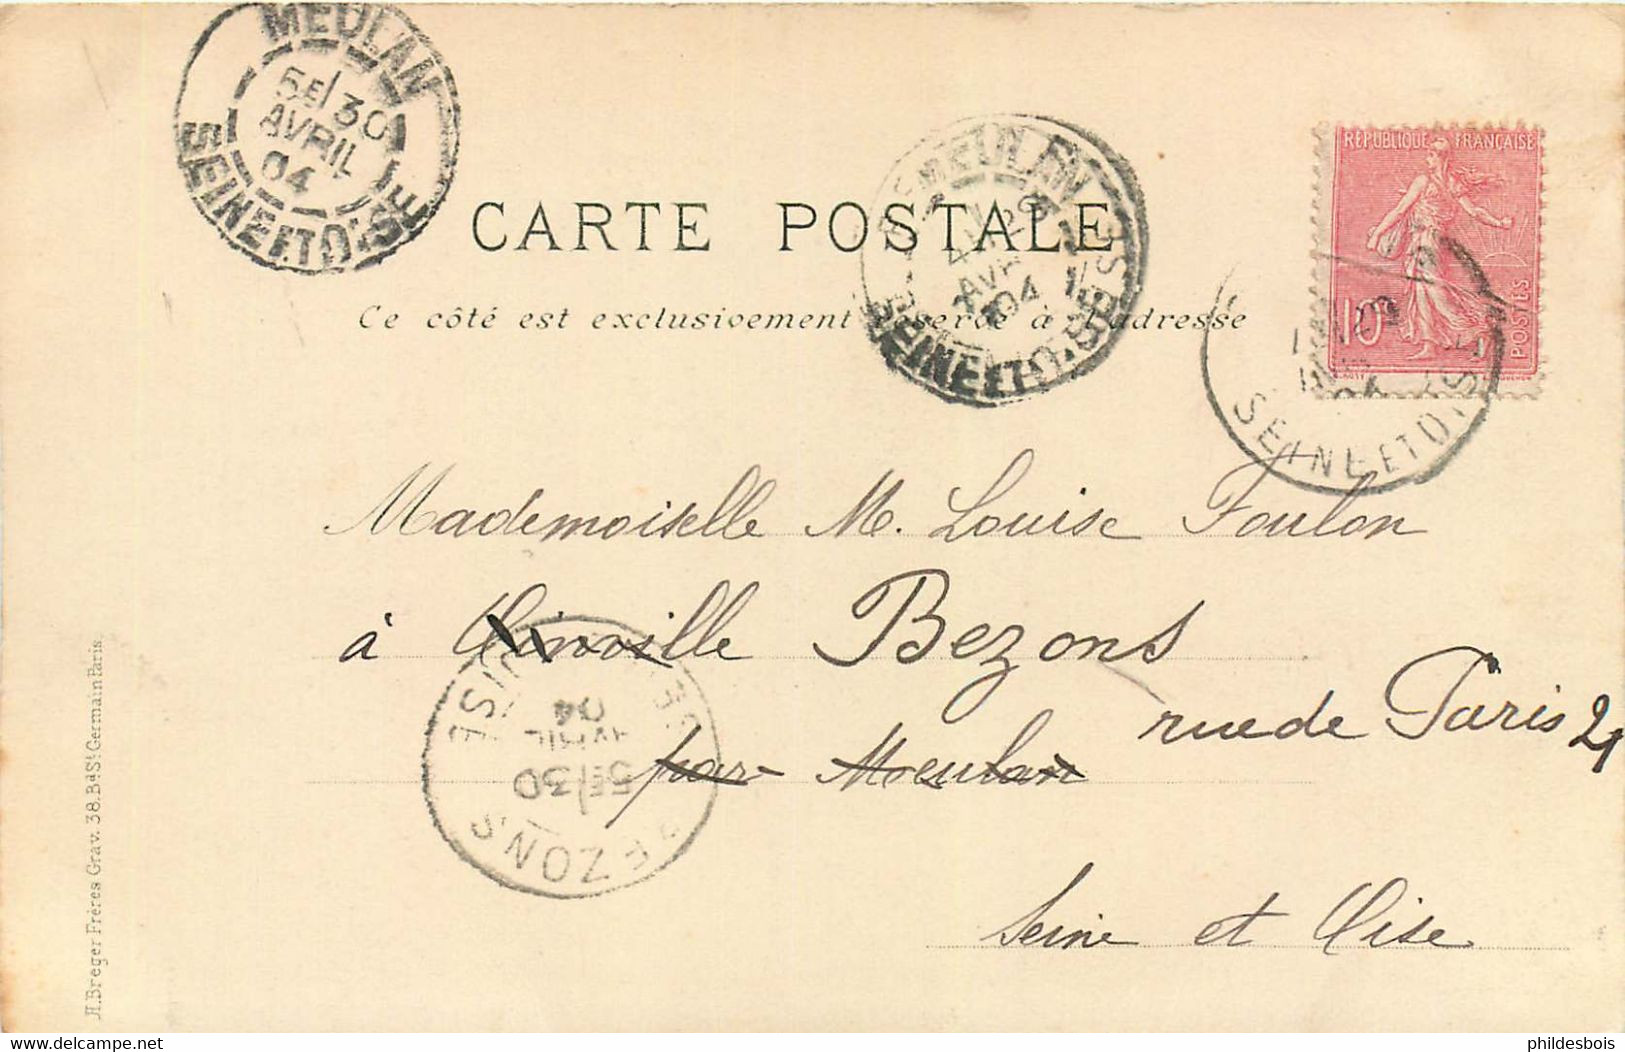 MEULAN
5E/30
AVRIL
04
SEINE ET OISE
MEULAN
AVR
04
SEINE ET OISE
REPUBLIQUE FRANÇAISE
10
POSTES
SEINE ET OISE
CARTE POSTALE
Ce côté est exclusivement réservé à l'adresse
Mademoiselle M. Louise Foulon
à Oinville Bezons
rue de Paris 21
par Meulan
Seine et Oise
BEZONS
5E/30
AVRIL
04
SEINE ET OISE
A. Breger Frères Grav. 38. Bd St Germain Paris.
phildesbois